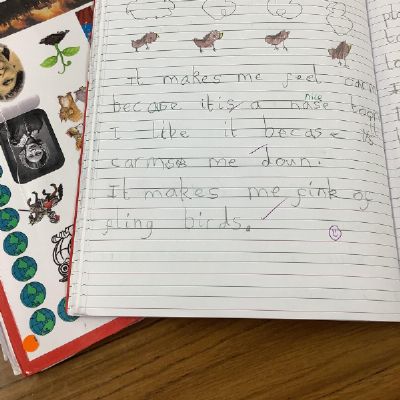 It makes me feel
becaoe it is a nase nice
I like it becase
carmse me down.
It makes me fink of
fling birds.